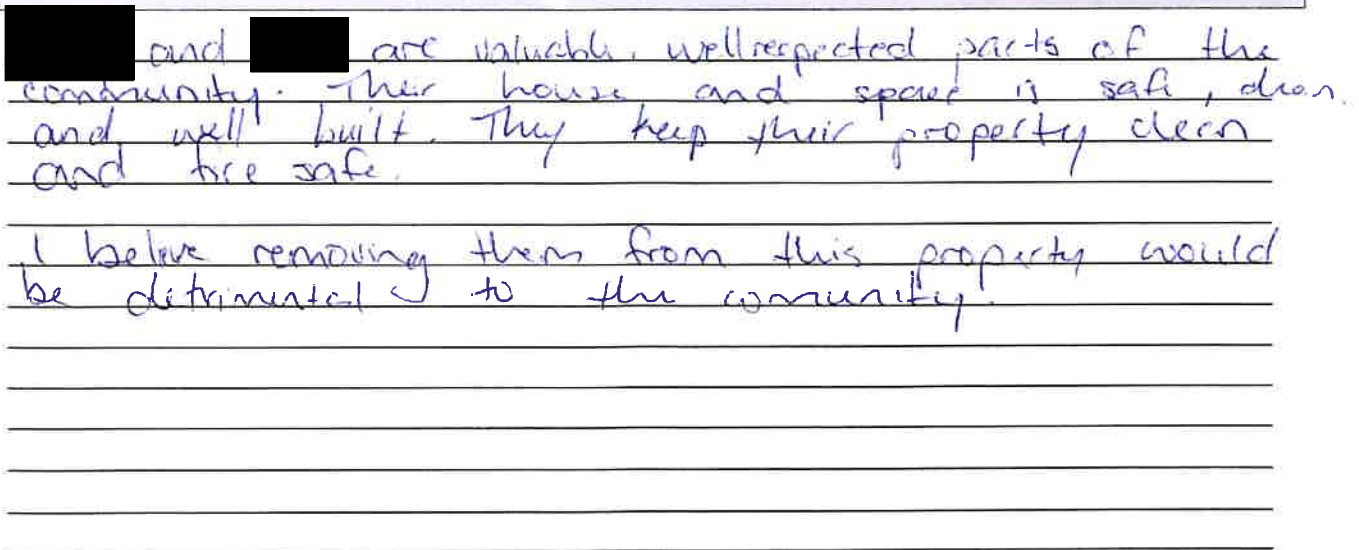 and are valuable. wellrespected parts of the
community. Their house and space is safe, clean
and well built. They keep their property clean
and fire safe.
I belive removing them from this property would
be detrimental to the comunity.